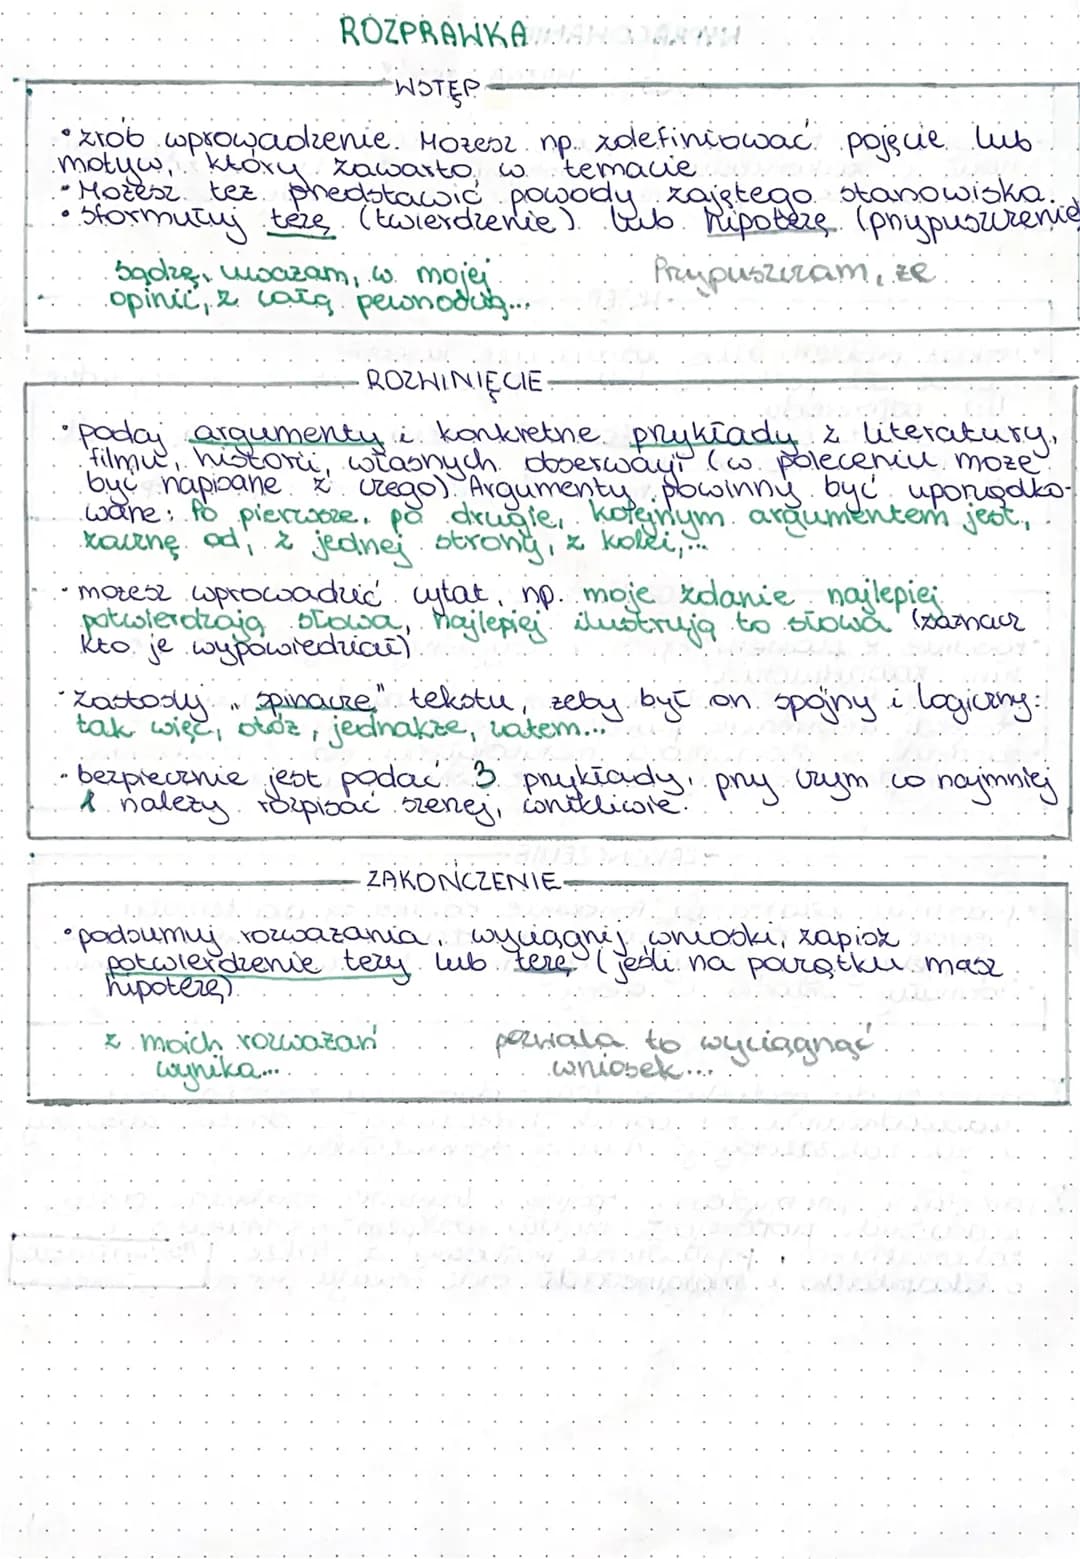 ROZPRAWKA
WSTĘP
• zrób wprowadzenie. Możesz np. zdefiniować pojęcie lub
motyw, który zawarto w temacie
• Możesz też przedstawić powody zajętego stanowiska.
• Sformułuj tezę (twierdzenie) lub hipotezę (przypuszczenie)
Sądzę, uważam, w mojej
opinii, z całą pewnością...
Przypuszczam, że
ROZWINIĘCIE
• podaj argumenty i konkretne przykłady z literatury,
filmu, historii, własnych obserwacji (w poleceniu może
być napisane z czego). Argumenty powinny być uporządko-
wane: Po pierwsze, po drugie, kolejnym argumentem jest,
zacznę od, z jednej strony, z kolei,...
• możesz wprowadzić cytat, np. moje zdanie najlepiej
potwierdzają słowa, najlepiej ilustrują to słowa (zaznacz
kto je wypowiedział).
• Zastosuj „spinacze" tekstu, żeby był on spójny i logiczny:
tak więc, otóż, jednakże, zatem...
• bezpiecznie jest podać 3 przykłady, przy czym co najmniej
1 należy rozpisać szerzej, wnikliwie.
ZAKOŃCZENIE
• podsumuj rozważania, wyciągnij wnioski, zapisz
potwierdzenie tezy lub tezę (jeśli na początku masz
hipotezę).
z moich rozważań
wynika...
pozwala to wyciągnąć
wniosek...